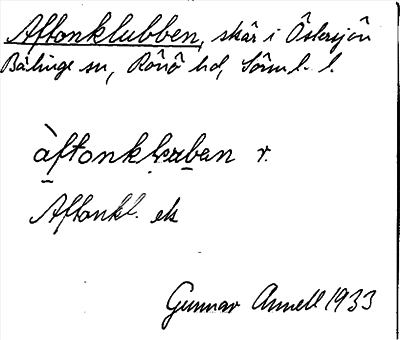 Aftonklubben, skär i Östersjön
Bälinge sn, Rönö hd, Sörml. l.
àftonklɐban r.
Aftonkl. ek
Gunnar Annell 1933